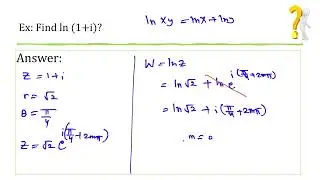 Ex: Find ln (1+i)?
ln xy = lnx + lny
Answer:
z = 1+i
r = √2
θ = π/4
z = √2 e^i(π/4 + 2mπ)
W = ln z
= ln √2 + ln e^i(π/4 + 2mπ)
= ln √2 + i(π/4 + 2mπ)
m = 0